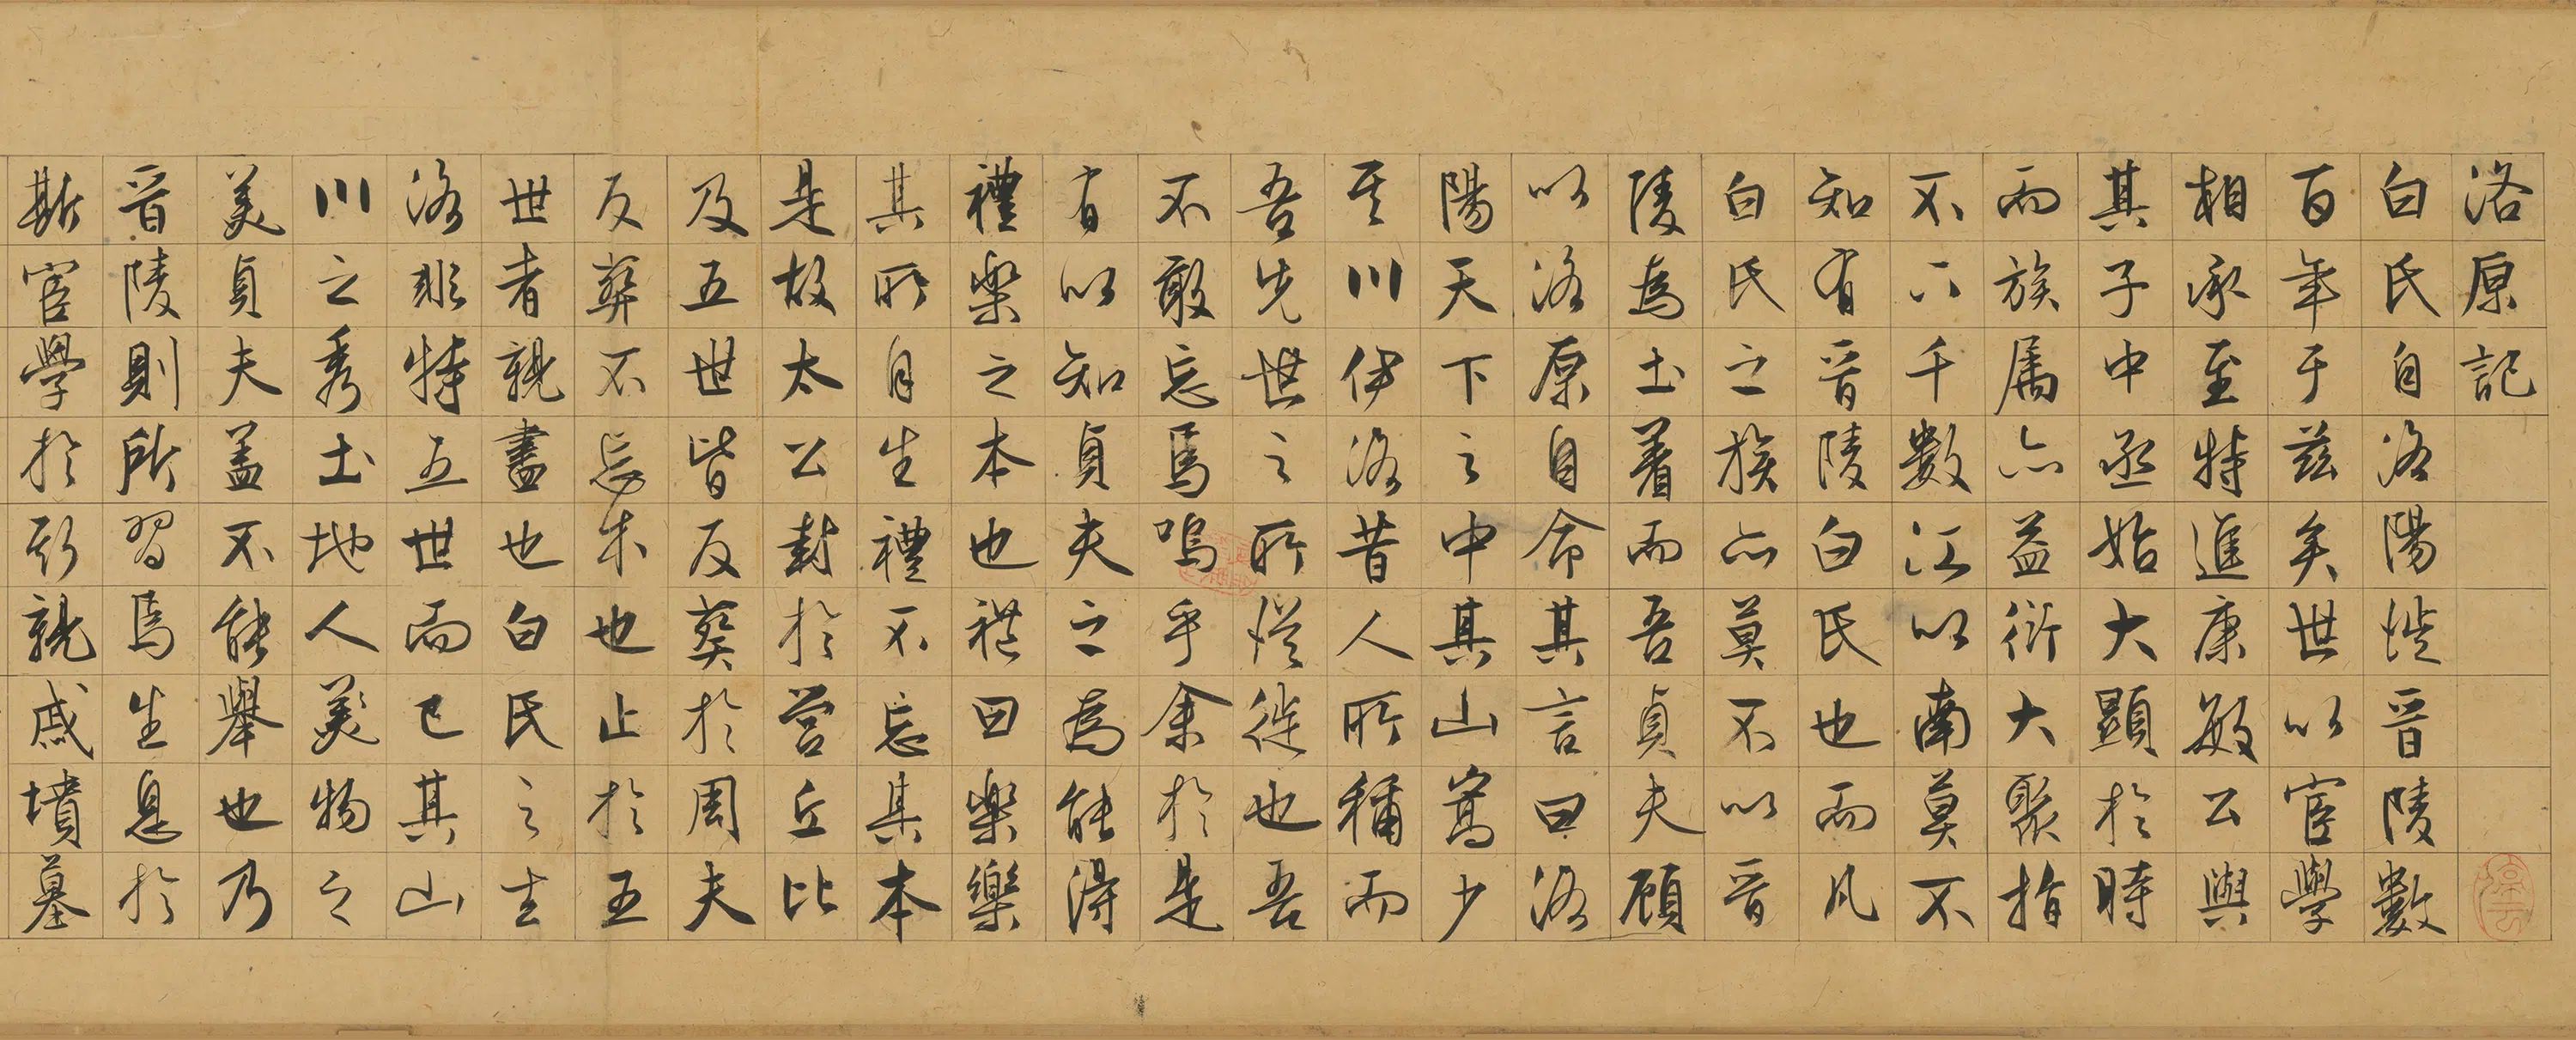 洛原記
白氏自洛陽徙晉陵數
百年于茲矣世以宦學
相承至特進康敏公與
其子中丞始大顯於時
而族屬亦益衍大聚指
不下千數江以南莫不
知有晉陵白氏也而凡
白氏之族亦莫不以晉
陵為土著而吾貞夫顧
以洛原自命其言曰洛
陽天下之中其山嵩少
其川伊洛昔人所稱而
吾先世之所從徙也吾
不敢忘焉嗚乎余於是
有以知貞夫之為能得
禮樂之本也禮曰樂樂
其所自生禮不忘其本
是故太公封於營丘比
及五世皆反葬於周夫
反葬不忘本也止於五
世者親盡也白氏之去
洛非特五世而已其山
川之秀土地人美物之
美貞夫蓋不能舉也乃
晉陵則所習焉生息於
斯宦學於斯親戚墳墓